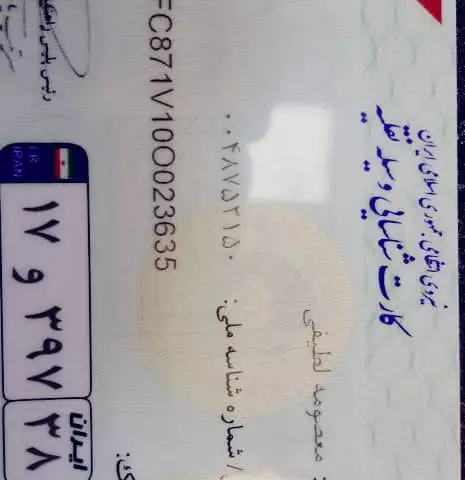 نیروی انتظامی جمهوری اسلامی ایران
کارت شناسایی وسیله نقلیه
: معصومه لطیفی
/ شماره شناسه ملی: ۰۰۴۸۷۵۲۱۵۰
FC871V10O023635
رئیس پلیس راهنما
I.R.
IRAN
۱۷ و ۳۹۷
ایران
۳۸